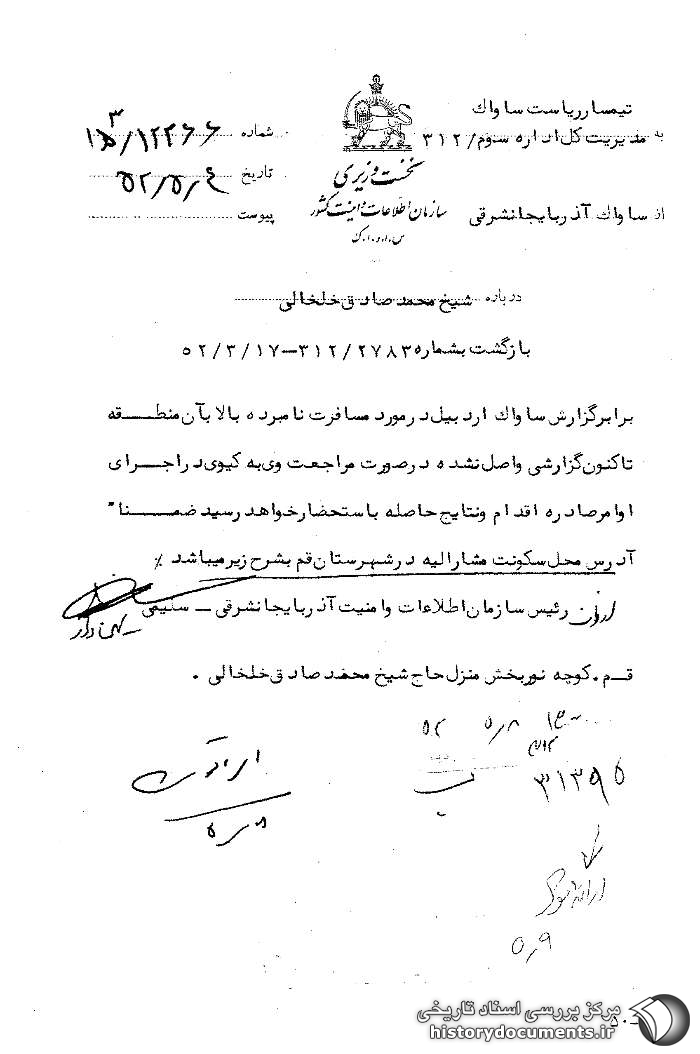 تیمسار ریاست ساواك
به مدیریت کل اداره سوم/۳۱۲
از ساواك آذربایجانشرقی
نخست وزیری
سازمان اطلاعات و امنیت کشور
س.ا.و.ا.ک
شماره
تاریخ ۵۲/۵/۴
پیوست
درباره شیخ محمد صادق خلخالی
بازگشت بشماره ۳۱۲/۲۷۸۳-۵۲/۳/۱۷
برابر گزارش ساواك اردبیل در مورد مسافرت نامبرده بالا بآن منطقه
تاکنون گزارشی واصل نشده در صورت مراجعت وی به کیوی در اجرای
اوامر صادره اقدام و نتایج حاصله باستحضار خواهد رسید ضمنا"
آدرس محل سکونت مشارالیه در شهرستان قم بشرح زیر میباشد ٪
رئیس سازمان اطلاعات و امنیت آذربایجانشرقی ــ سلیمی
قم . کوچه نوربخش منزل حاج شیخ محمد صادق خلخالی .
۵۲ ۵٫۸
۳۱۳۹۵
۵٫۸
۵٫۹
مرکز بررسی اسناد تاریخی
historydocuments.ir